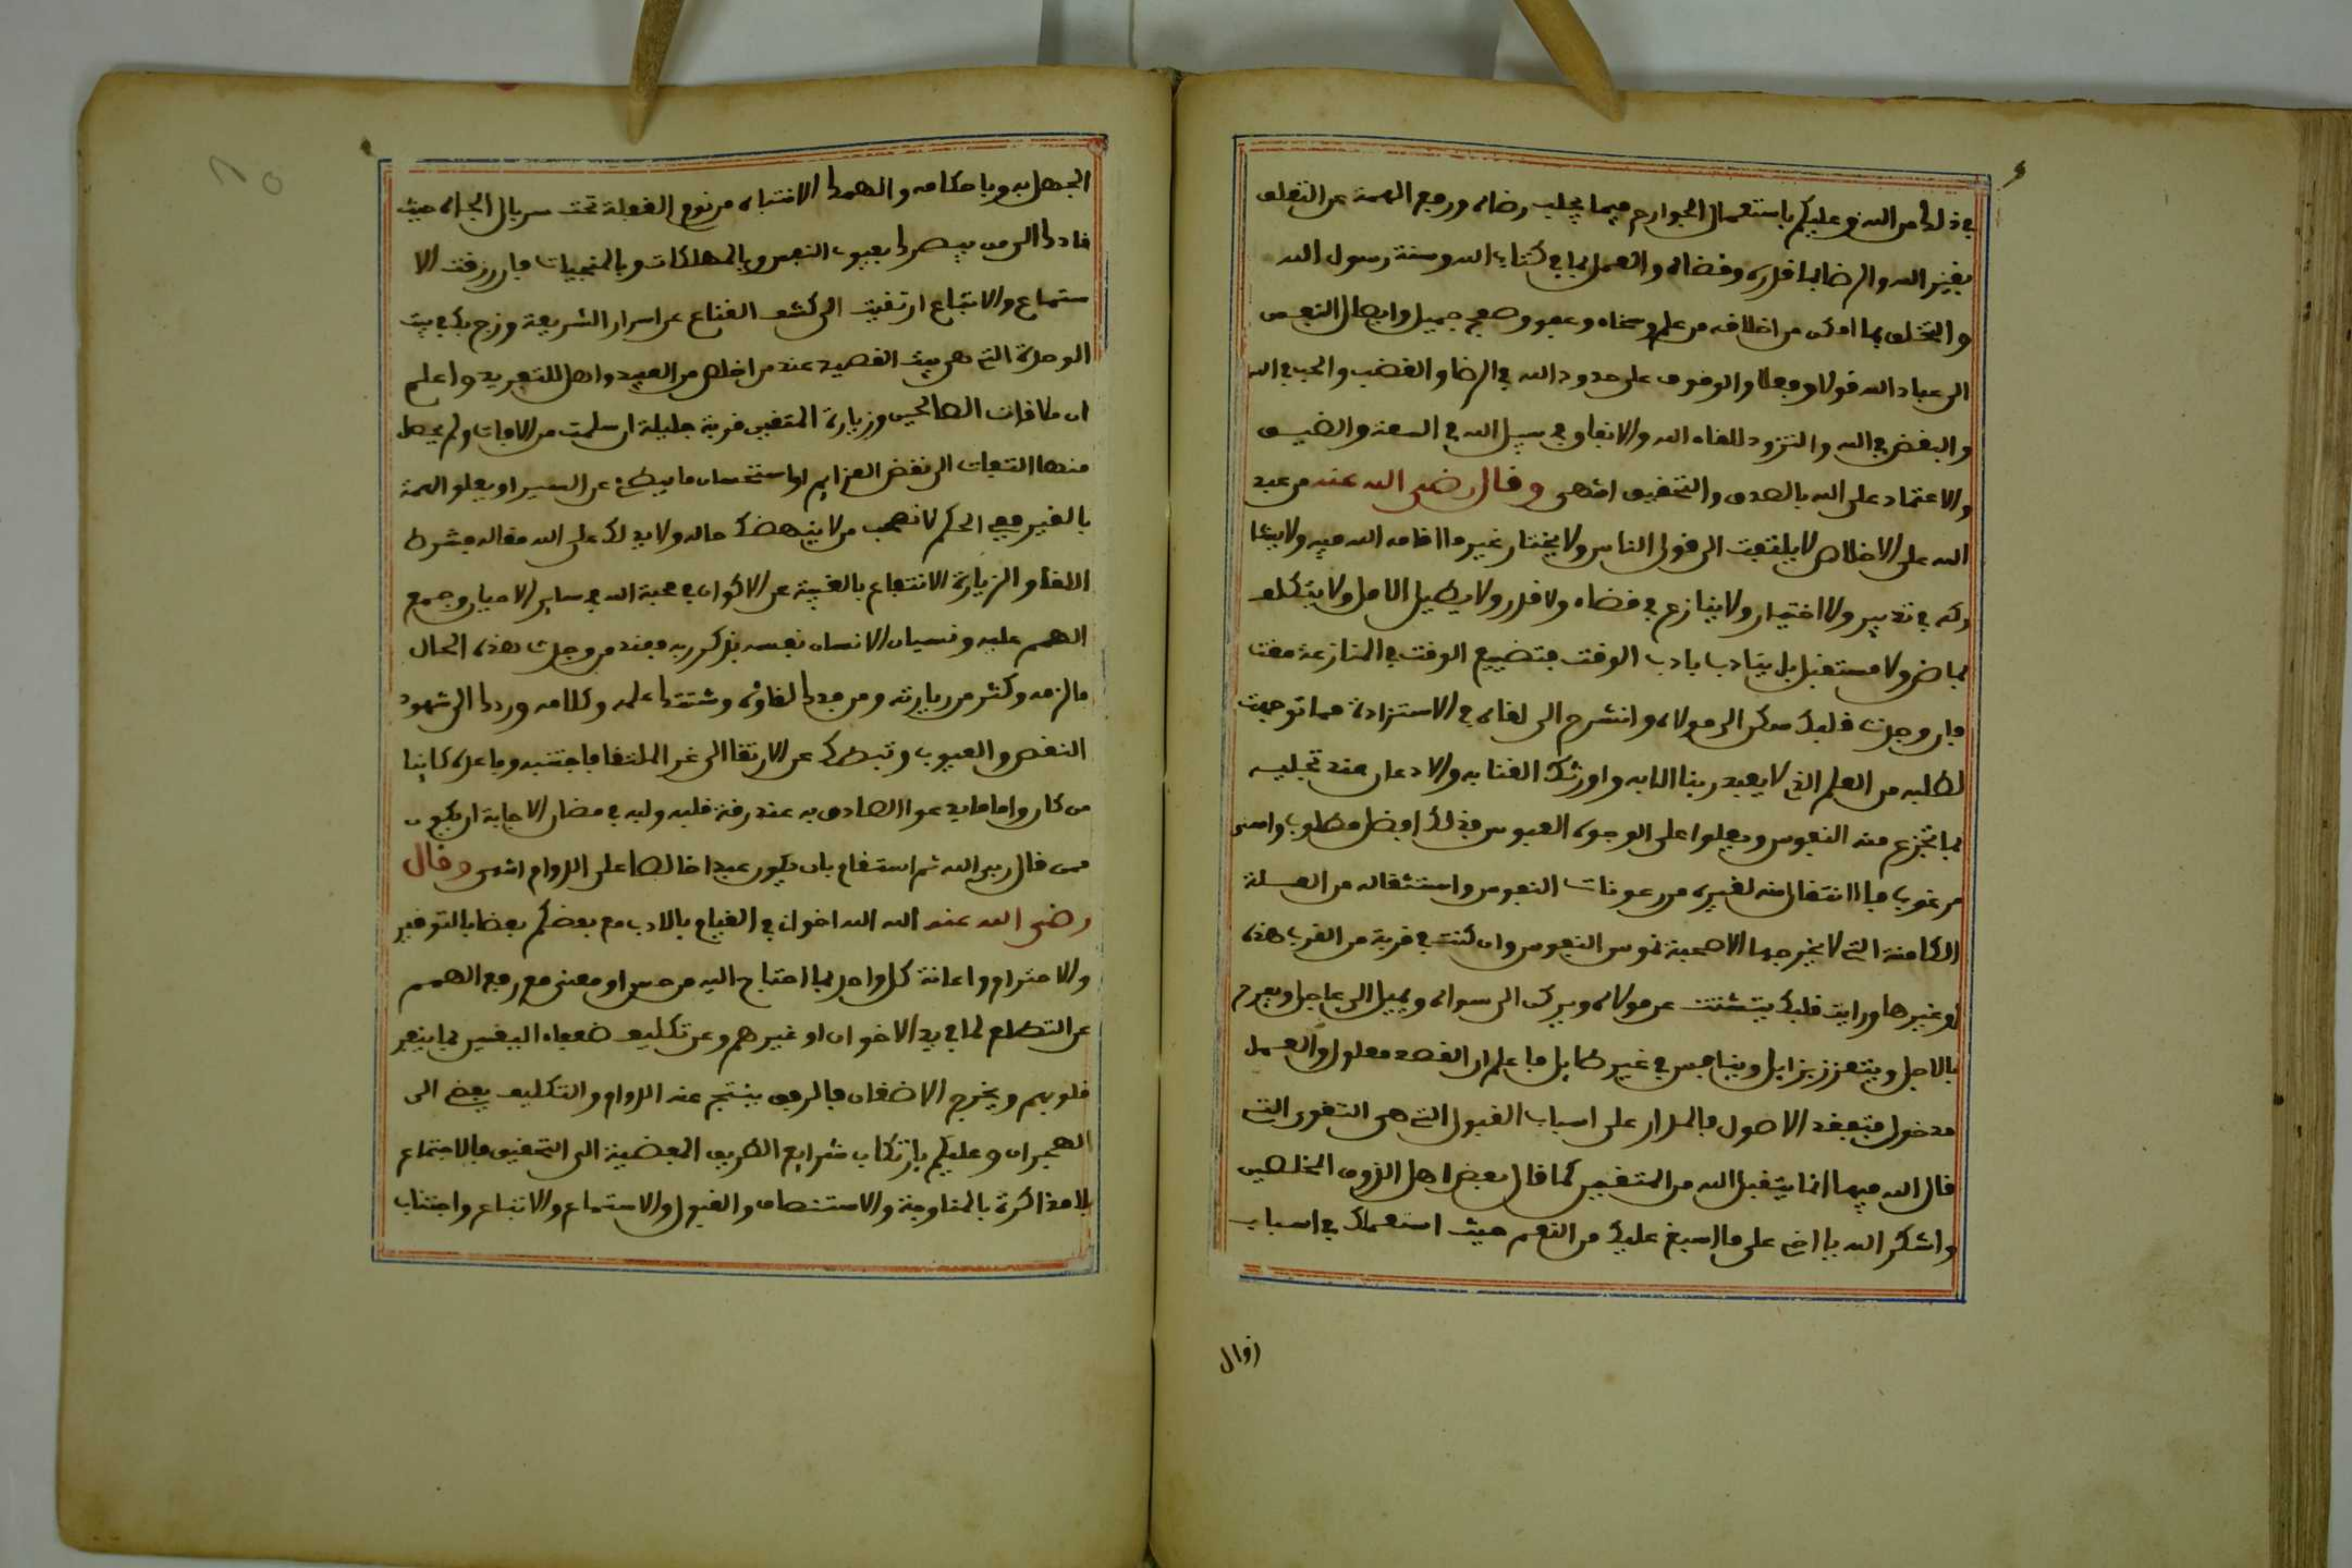 في ذلك من الله وعليكم باستعمال الجوارح فيما يجلب رضاه ورفع الهمة عن التعلق
بغير الله والرضا بما قدره وقضاه والعمل بما في كتاب الله وسنة رسول الله
والتخلق بما امكن من اخلاقه من علم وسخاء وعفو وصفح جميل وايصال النفع
الى عباد الله قولا وفعلا والوقوف على حدود الله في الرضا والغضب والحب في الله
والبغض في الله والتزود للقاء الله والانفاق في سبيل الله في السعة والضيق
والاعتماد على الله بالصدق والتحقيق انتهى وقال رضي الله عنه من عبد
الله على الاخلاص لا يلتفت الى قول الناس ولا يختار غير ما اقامه الله فيه ولا
في تدبير ولا اختيار ولا ينازع في قضاء ولا قدر ولا يطيل الامل ولا يتكلف
لماض ولا مستقبل بل يتادب بادب الوقت فتضييع الوقت في المنازعة مقت
فان وجدت قلبك سكن الى مولاه وانشرح الى لقاه في الاستزادة مما توجهت
لطلبه من العلم الذي لا يعبد ربنا الا به واورثك الغنا به والادعان عند تجليه
بما تجزع منه النفوس ويعلوا على الوجوه العبوس فذلك افضل مطلوب واسنى
مرغوب فالانتقال منه لغيره من رعونات النفوس واستثقاله من العلة
الكامنة التي لا يخرجها الا صحبة نموس النفوس وان كنت في قربة من القرب هذه
او غيرها ورايت قلبك يتشتت عن مولاه ويركن الى سواه ويميل الى عاجل ويفرح
بالاجل ويتعزز بزايل ويتنافس في غير طايل فاعلم ان القصد معلول والعمل
مدخول فتفقد الاصول فالمدار على اسباب القبول التي هي التقوى التي
قال الله فيها انما يتقبل الله من المتقين كما قال بعض اهل الذوق المخلصين
واشكر الله يا اخي على ما اسبغ عليك من النعم حيث استعملك في اسباب
زوال
الجهل به وباحكامه والهمك الانتباه من نوم الغفلة تحت سربال الجاه حيث
قادك الى من يبصرك بعيوب النفس وبالمهلكات وبالمنجيات فان رزقت الا
ستماع والاتباع ارتقيت الى كشف القناع عن اسرار الشريعة وزج بك في بيت
الوحدة التي هي بيت القصيد عند من اخلص من العبيد واهل للتفريد واعلم
ان ملاقات الصالحين وزيارة المتقين قربة جليلة ان سلمت من الافات ولم يحصل
منها التفات الى نقض العزايم او استحسان ما يبطئ عن السير او يعلو الهمة
بالغير ففي الحكم لا تصحب من لا ينهضك حاله ولا يدلك على الله مقاله فشرط
اللقا والزيارة الانتفاع بالغيبة عن الاكوان في محبة الله في ساير الاحيان وجمع
الهمم عليه ونسيان الانسان نفسه بذكر ربه فعند من وجدت هذه الحال
فالزمه وكثر من زيارته ومن فقدك لقاؤه وشتتك علمه وكلامه وردك الى شهود
النقص والعيوب وثبطك عن الارتقا الى غير الملتقا فاجتنبه وباعده كاينا
من كان واما ما يدعوا الصادق به عند رقة قلبه وليه في مضان الاجابة ان يكون
ممن قال ربي الله ثم استقام بان يكون عبدا خالصا على الدوام انتهى وقال
رضي الله عنه الله الله اخوان في القيام بالادب مع بعضكم بعضا بالتوقير
والاحترام واعانة كل واحد بما احتاج اليه من حس او معنى مع رفع الهمم
عن التطلع لما في يد الاخوان او غيرهم وعن تكليف ضعفاء اليقين بما ينفر
قلوبهم ويخرج الاضغان فالرفق ينتج عنه الدوام والتكليف يفضي الى
الهجران وعليكم بارتكاب شرايع الطريق المفضية الى التحقيق فالاجتماع
بالمذاكرة بالمناوحة والاستنصات والقبول والاستماع والاتباع واجتناب